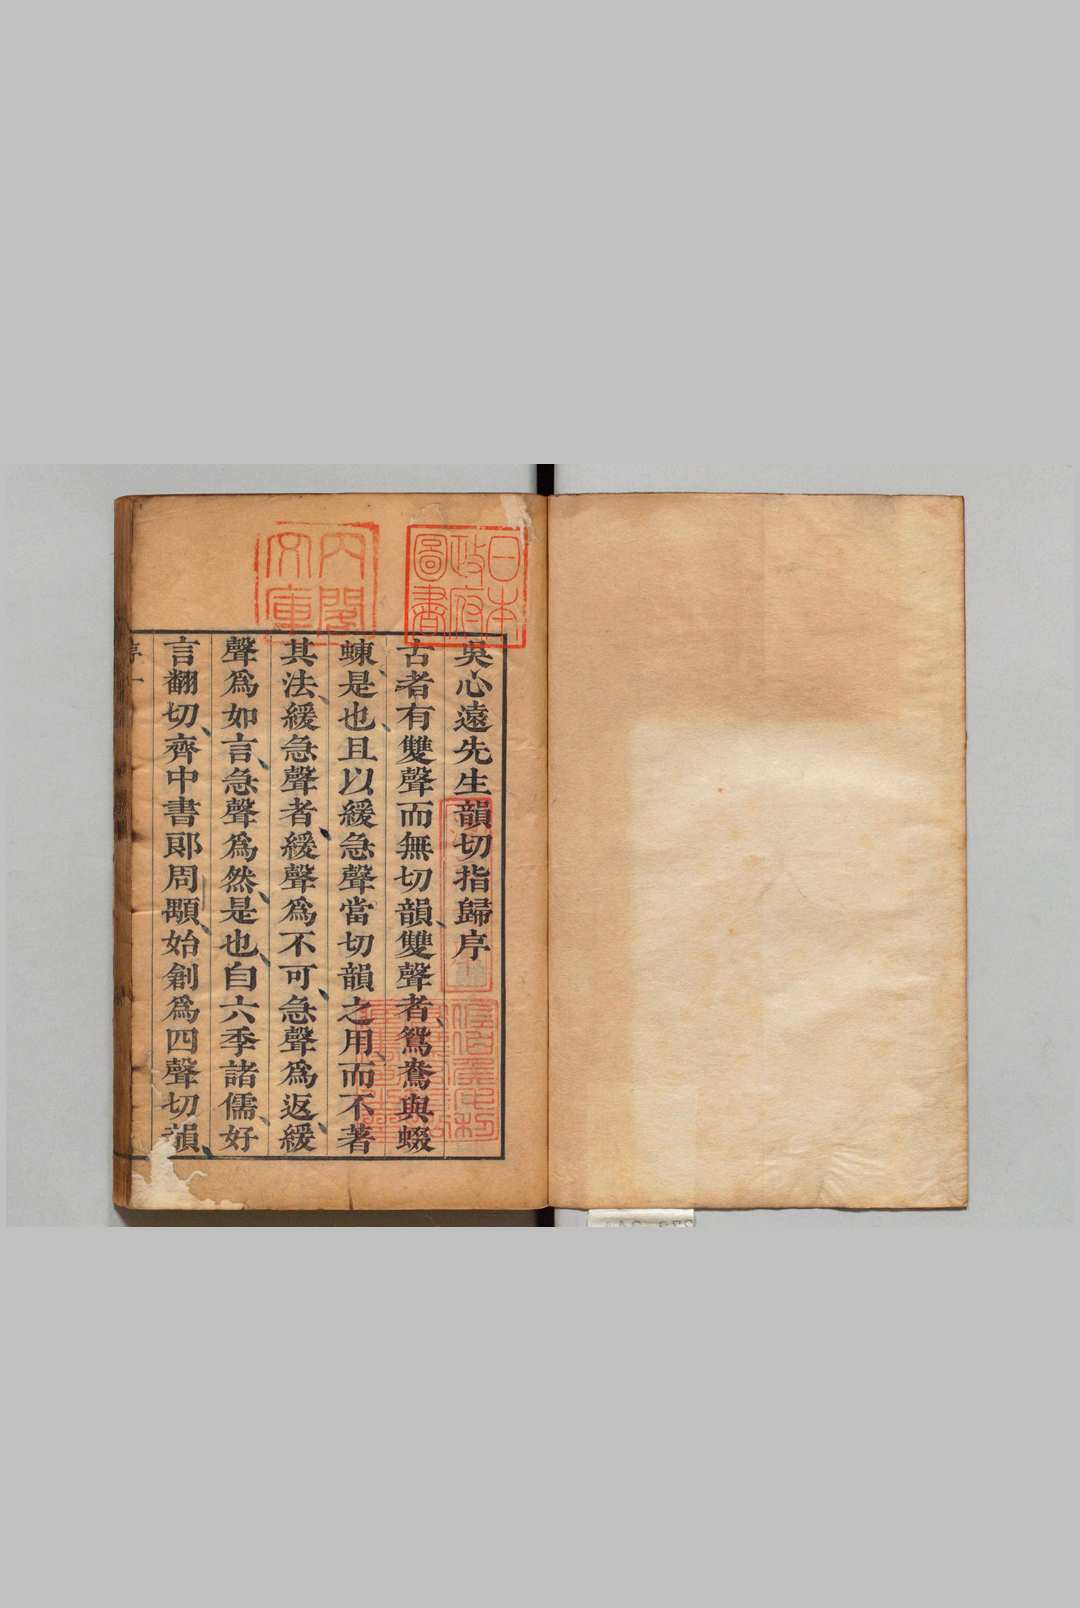 吳心遠先生韻切指歸序
古者有雙聲而無切韻雙聲者鴛鴦與蝃
蝀是也且以緩急聲當切韻之用而不著
其法緩急聲者緩聲爲不可急聲爲返緩
聲爲如言急聲爲然是也自六季諸儒好
言翻切齊中書郎周顒始創爲四聲切韻
序一
日本
政府
圖書
內閣
文庫